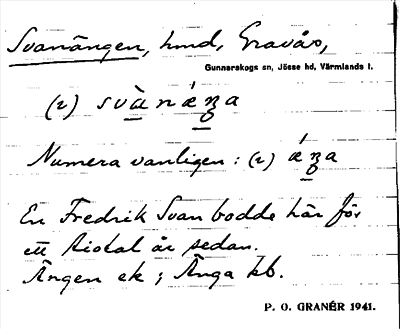 Svanängen, hmd, Gravås,
Gunnarskogs sn, Jösse hd, Värmlands l.
(2) svànáʒa
Numera vanligen: (2) ǽʒa
En Fredrik Svan bodde här för
ett tiotal år sedan.
Ängen ek; Änga kb.
P. O. GRANÉR 1941.